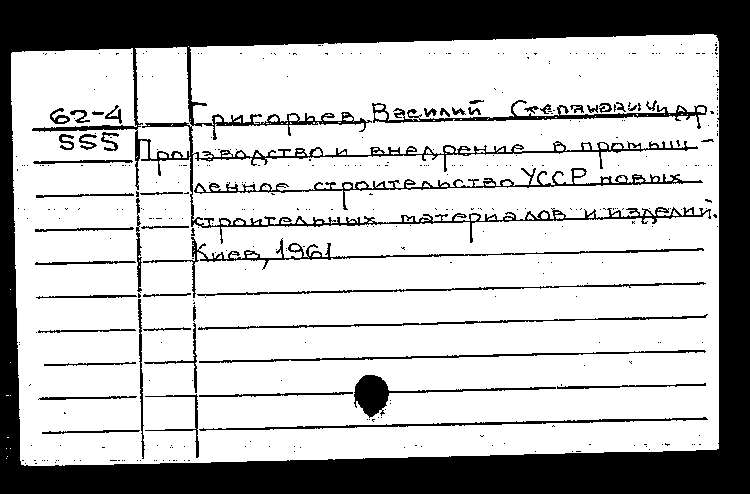 62-4
555
Григорьев, Василий Степанович и др.
Производство и внедрение в промыш-
ленное строительство УССР новых
строительных материалов и изделий.
Киев, 1961